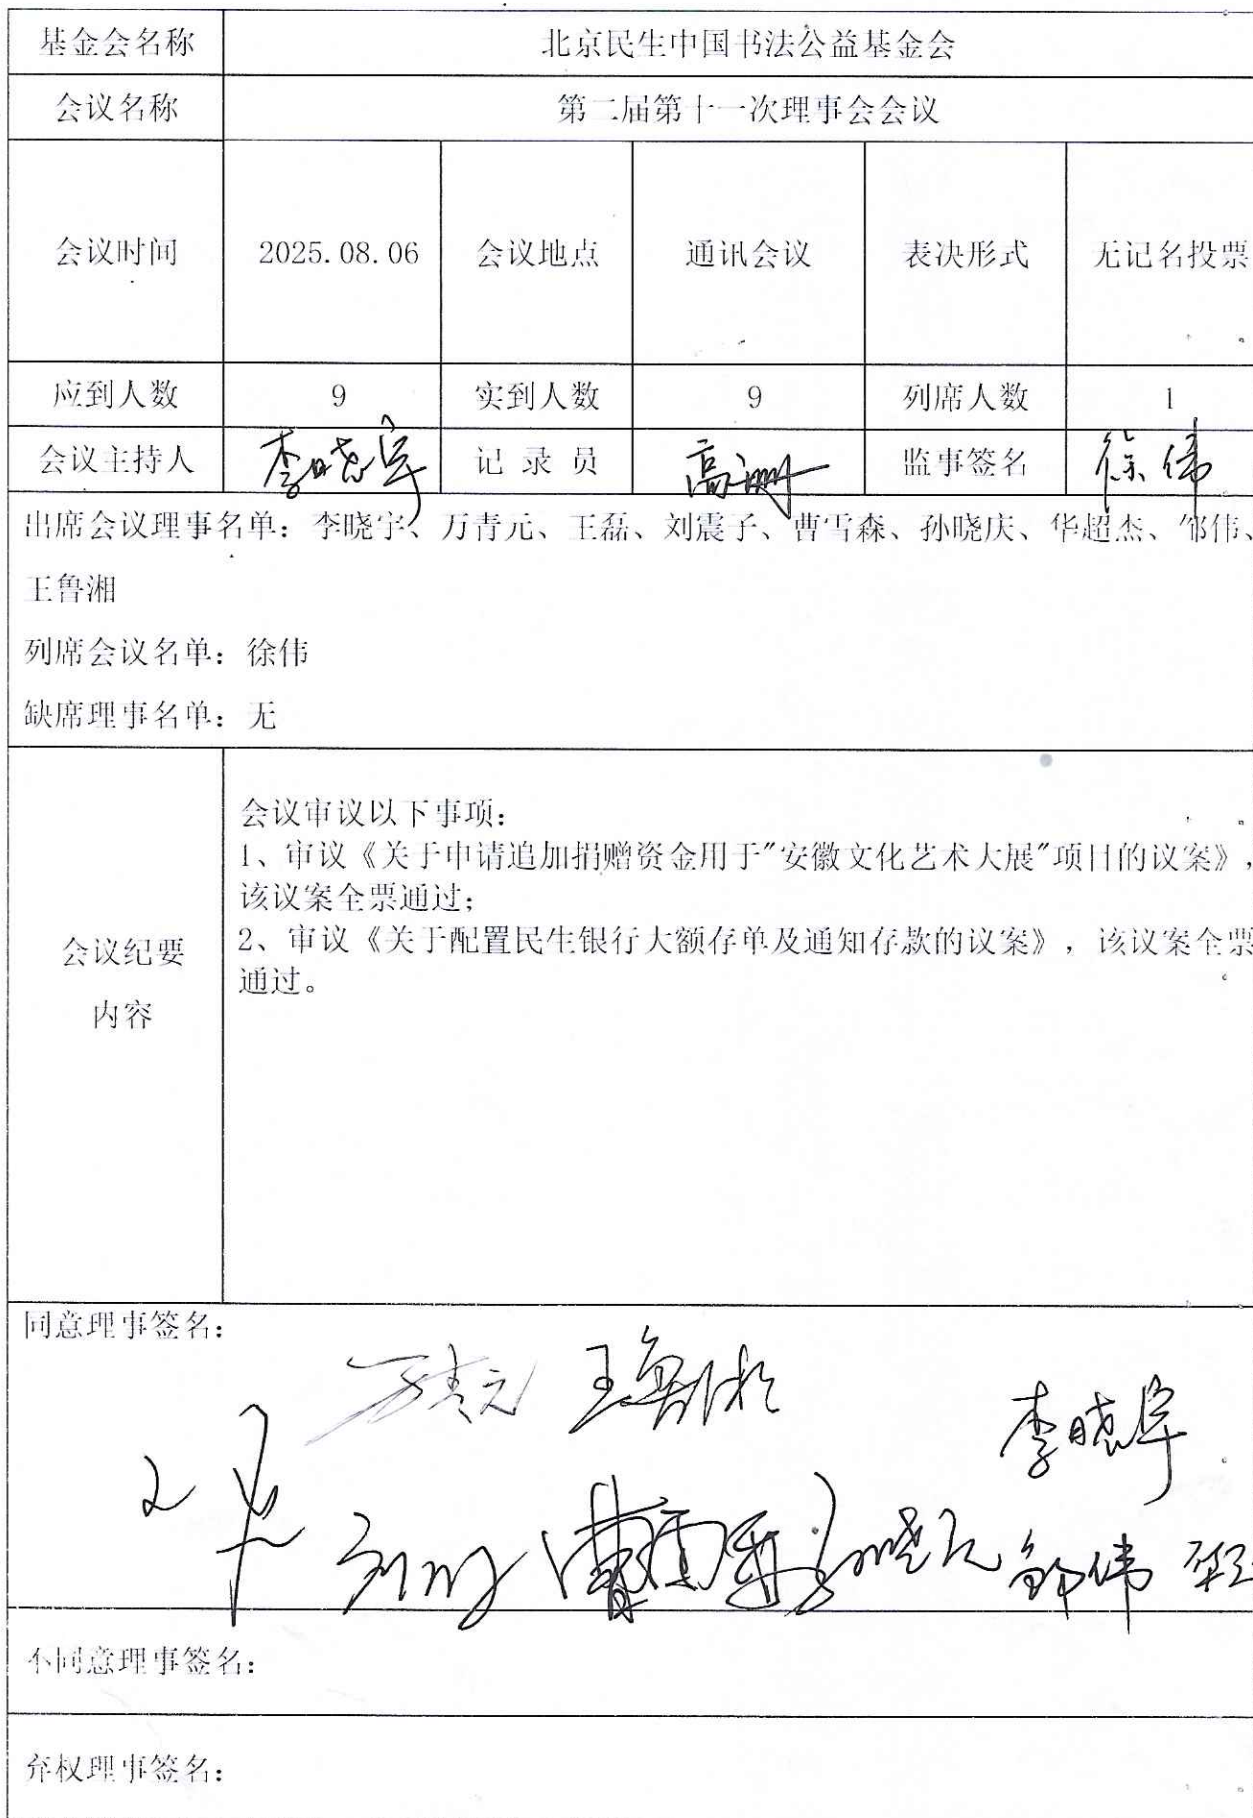 基金会名称 北京民生中国书法公益基金会
会议名称 第二届第十一次理事会会议
会议时间 2025.08.06 会议地点 通讯会议 表决形式 无记名投票
应到人数 9 实到人数 9 列席人数 1
会议主持人 李晓宇 记录员 高珊 监事签名 徐伟
出席会议理事名单：李晓宇、万青元、王磊、刘震子、曹雪森、孙晓庆、华超杰、邹伟、
王鲁湘
列席会议名单：徐伟
缺席理事名单：无
会议纪要
内容
会议审议以下事项：
1、审议《关于申请追加捐赠资金用于"安徽文化艺术大展"项目的议案》，
该议案全票通过；
2、审议《关于配置民生银行大额存单及通知存款的议案》，该议案全票
通过。
同意理事签名：
万青元 王鲁湘 李晓宇
曹雪森 孙晓庆 邹伟
不同意理事签名：
弃权理事签名：